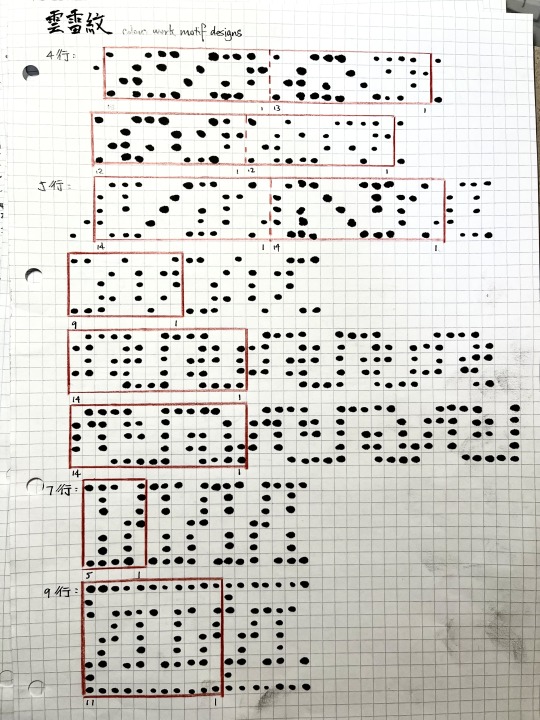 雲雷紋 colour work motif designs
4行:
13 1 13 1
12 1 12 1
5行:
14 1 14 1
9 1
14 1
14 1
7行:
5 1
9行:
11 1